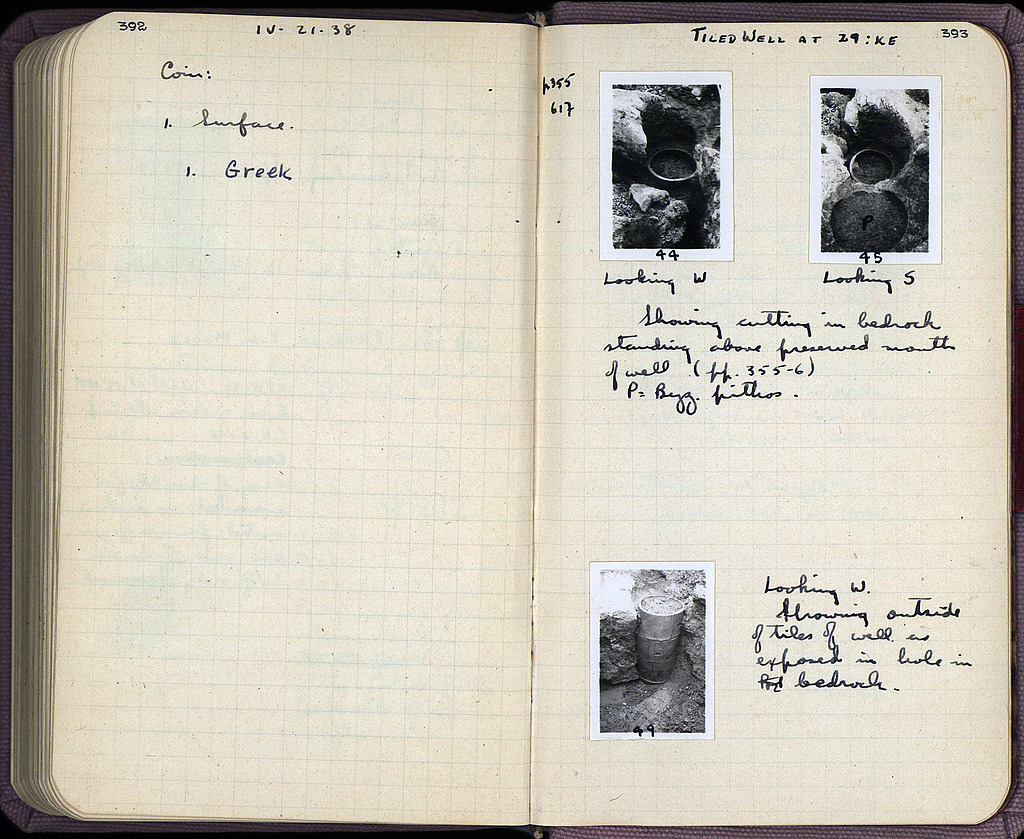 392
IV- 21- 38
Coin:
1. Surface.
1. Greek
TILED WELL AT 29:KE
393
p355
617
44
45
P
Looking W
Looking S
Showing cutting in bedrock
standing above preserved mouth
of well (pp. 355-6)
P= Byz. pithos.
49
Looking W.
Showing outside
of tiles of well as
exposed in hole in
bedrock.